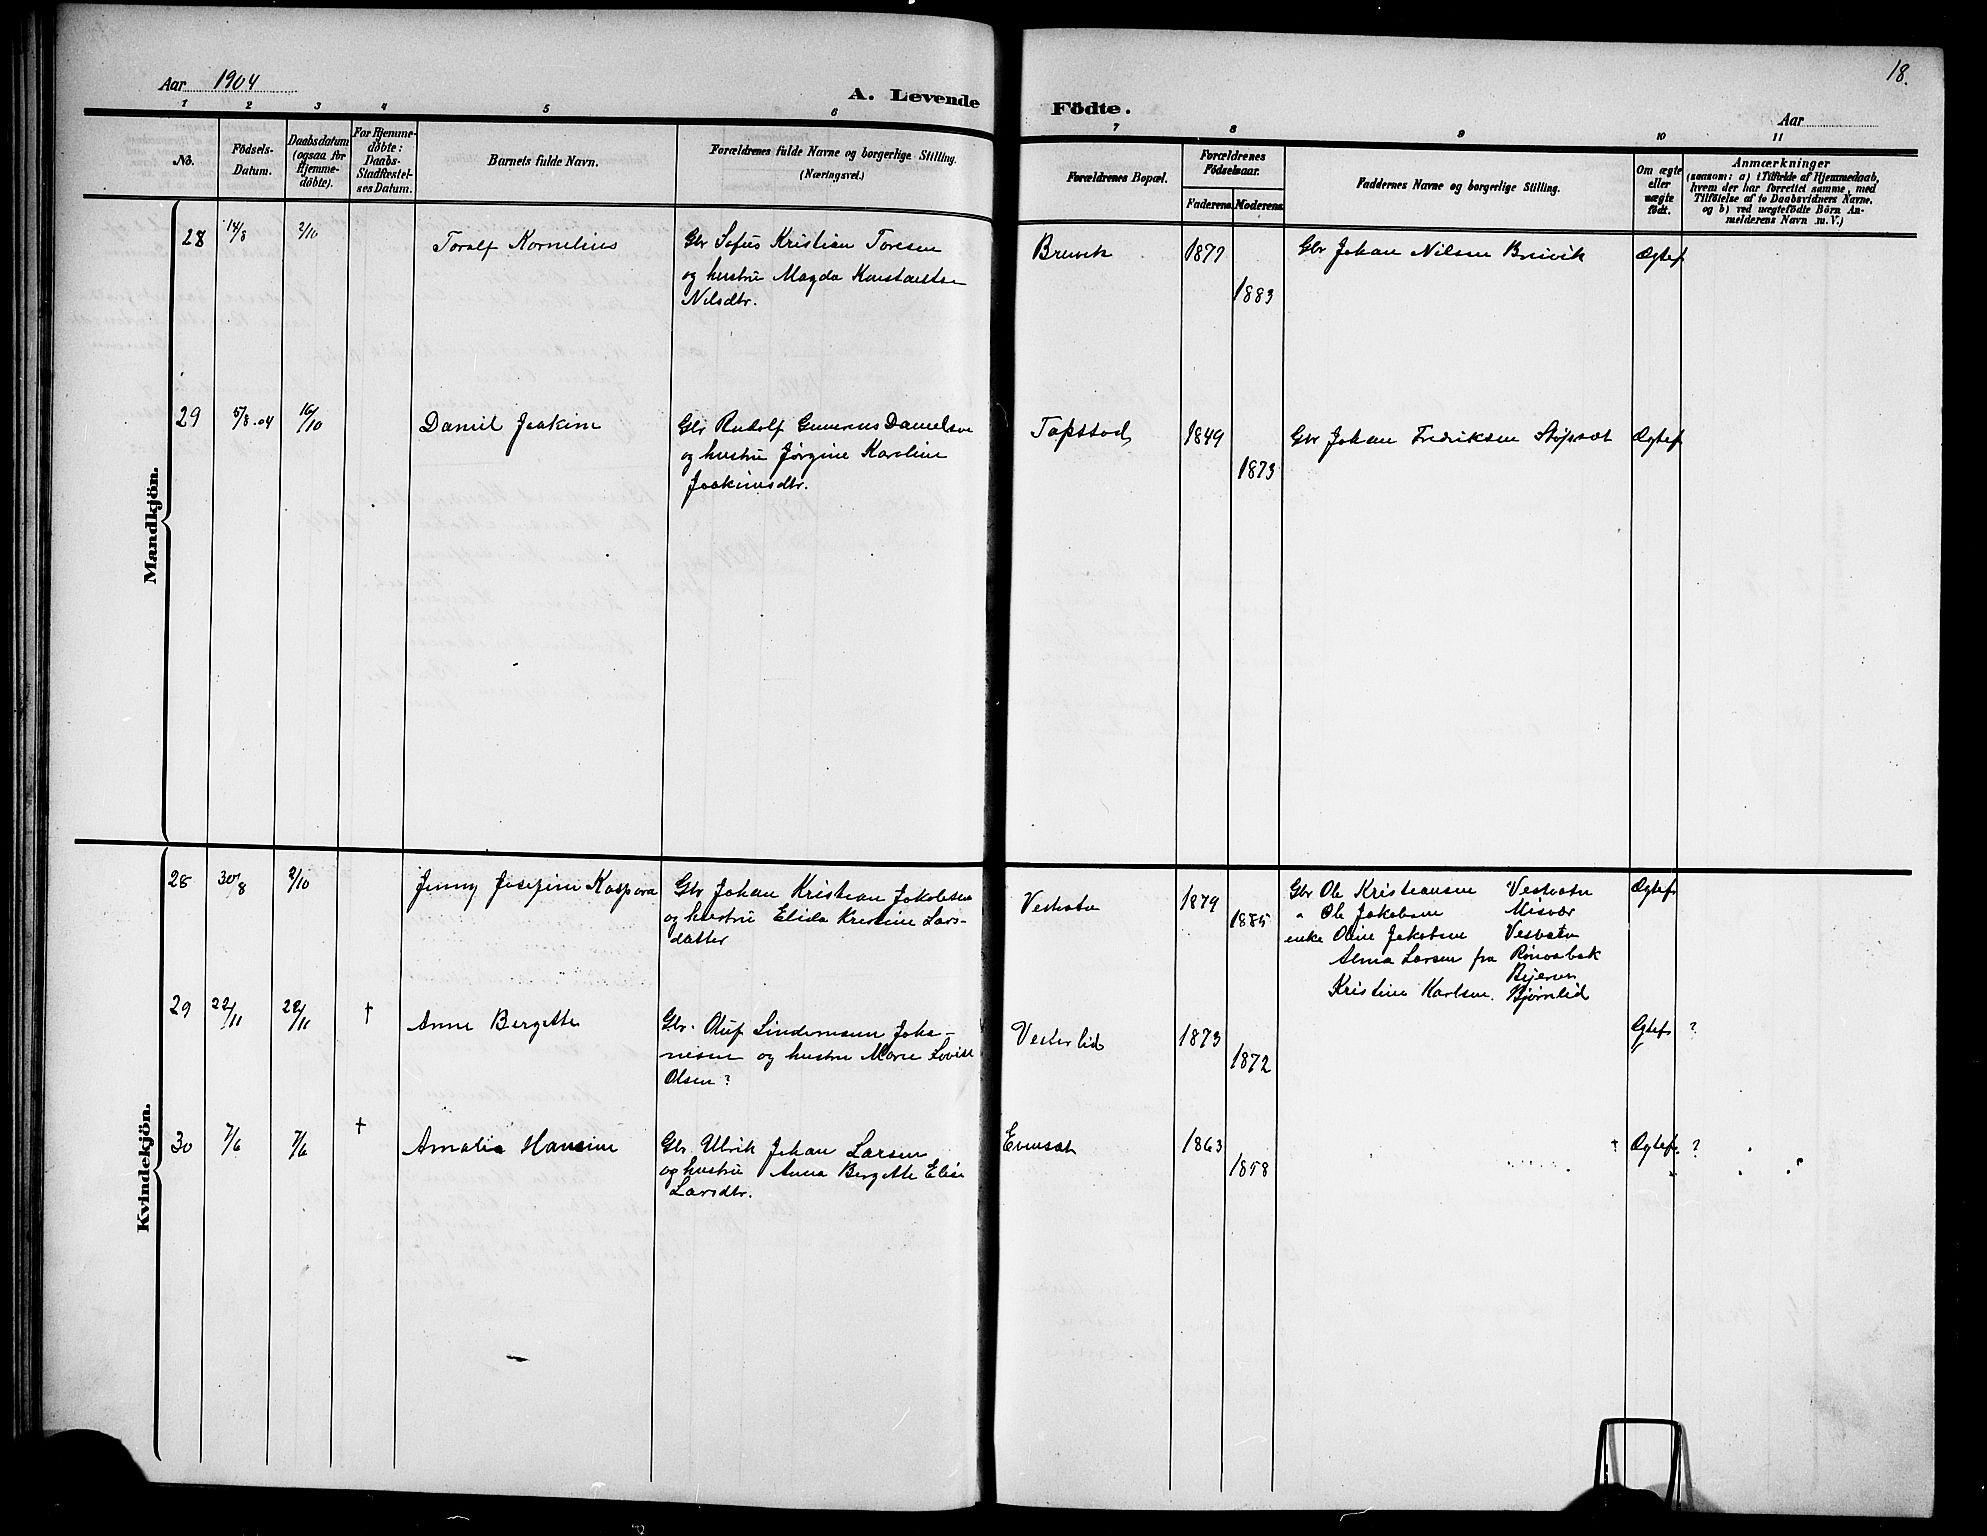 18.
Aar 1904
A. Levende Födte.
Aar
1 2 3 4 5 6 7 8 9 10 11
No.
Födsels-Datum.
Daabsdatum (ogsaa for Hjemme-döbte).
For Hjemme-döbte: Daabs-Stadfæstel-ses Datum.
Barnets fulde Navn.
Forældrenes fulde Navne og borgerlige Stilling.
(Næringsvei.)
Forældrenes Bopæl.
Forældrenes Födselsaar.
Faderens Moderens
Faddernes Navne og borgerlige Stilling.
Om ægte eller uægte födt.
Anmærkninger
(saasom: a) i Tilfælde af Hjemmedaab,
hvem der har forrettet samme, med
Tilföielse af to Daabsvidners Navne.
og b) ved uægtefödte Börn An-
melderens Navn m. V.)
Mandkjön.
28 14/8 2/10 Toralf Kornelius Gbr Sofus Kristian Toresen Bruvik 1877 Gbr Johan Nilsen Bruvik Ægtef
og hustru Magda Konstantse 1883
Nilsdtr.
29 5/8.04 16/10 Daniel Joakim Gbr Rudolf Gunerius Danielsen 1849 Gbr Johan Fredriksen Støpset Ægtef
og hustru Jørgine Karoline 1873
Joakimsdtr.
Kvindekjön.
28 30/8 2/10 Jenny Josefine Kaspara Gbr Johan Kristian Jakobsen Vestvatn 1879 Gbr Ole Kristiansen Vestvatn Ægtef
og hustru Elida Kristine Lars- 1885 " Ole Jakobsen Misvær
datter enke Oline Jakobsen Vesvatn
Alma Larsen fra
Bejeren
Kristine Karlsen. Bjørnlid
29 22/11 22/11 † Anne Bergette Gbr. Oluf Lindemsen Joha- Vesterlid 1873 Ægtef ?
nesen og hustru Marie Lovise 1872
Olsen ?
30 7/6 7/6 † Amalia Hansine Gbr Ulrik Johan Larsen Evensæt 1863 † Ægtef. ?
og hustru Anna Bergette Elise 1858
Larsdtr.